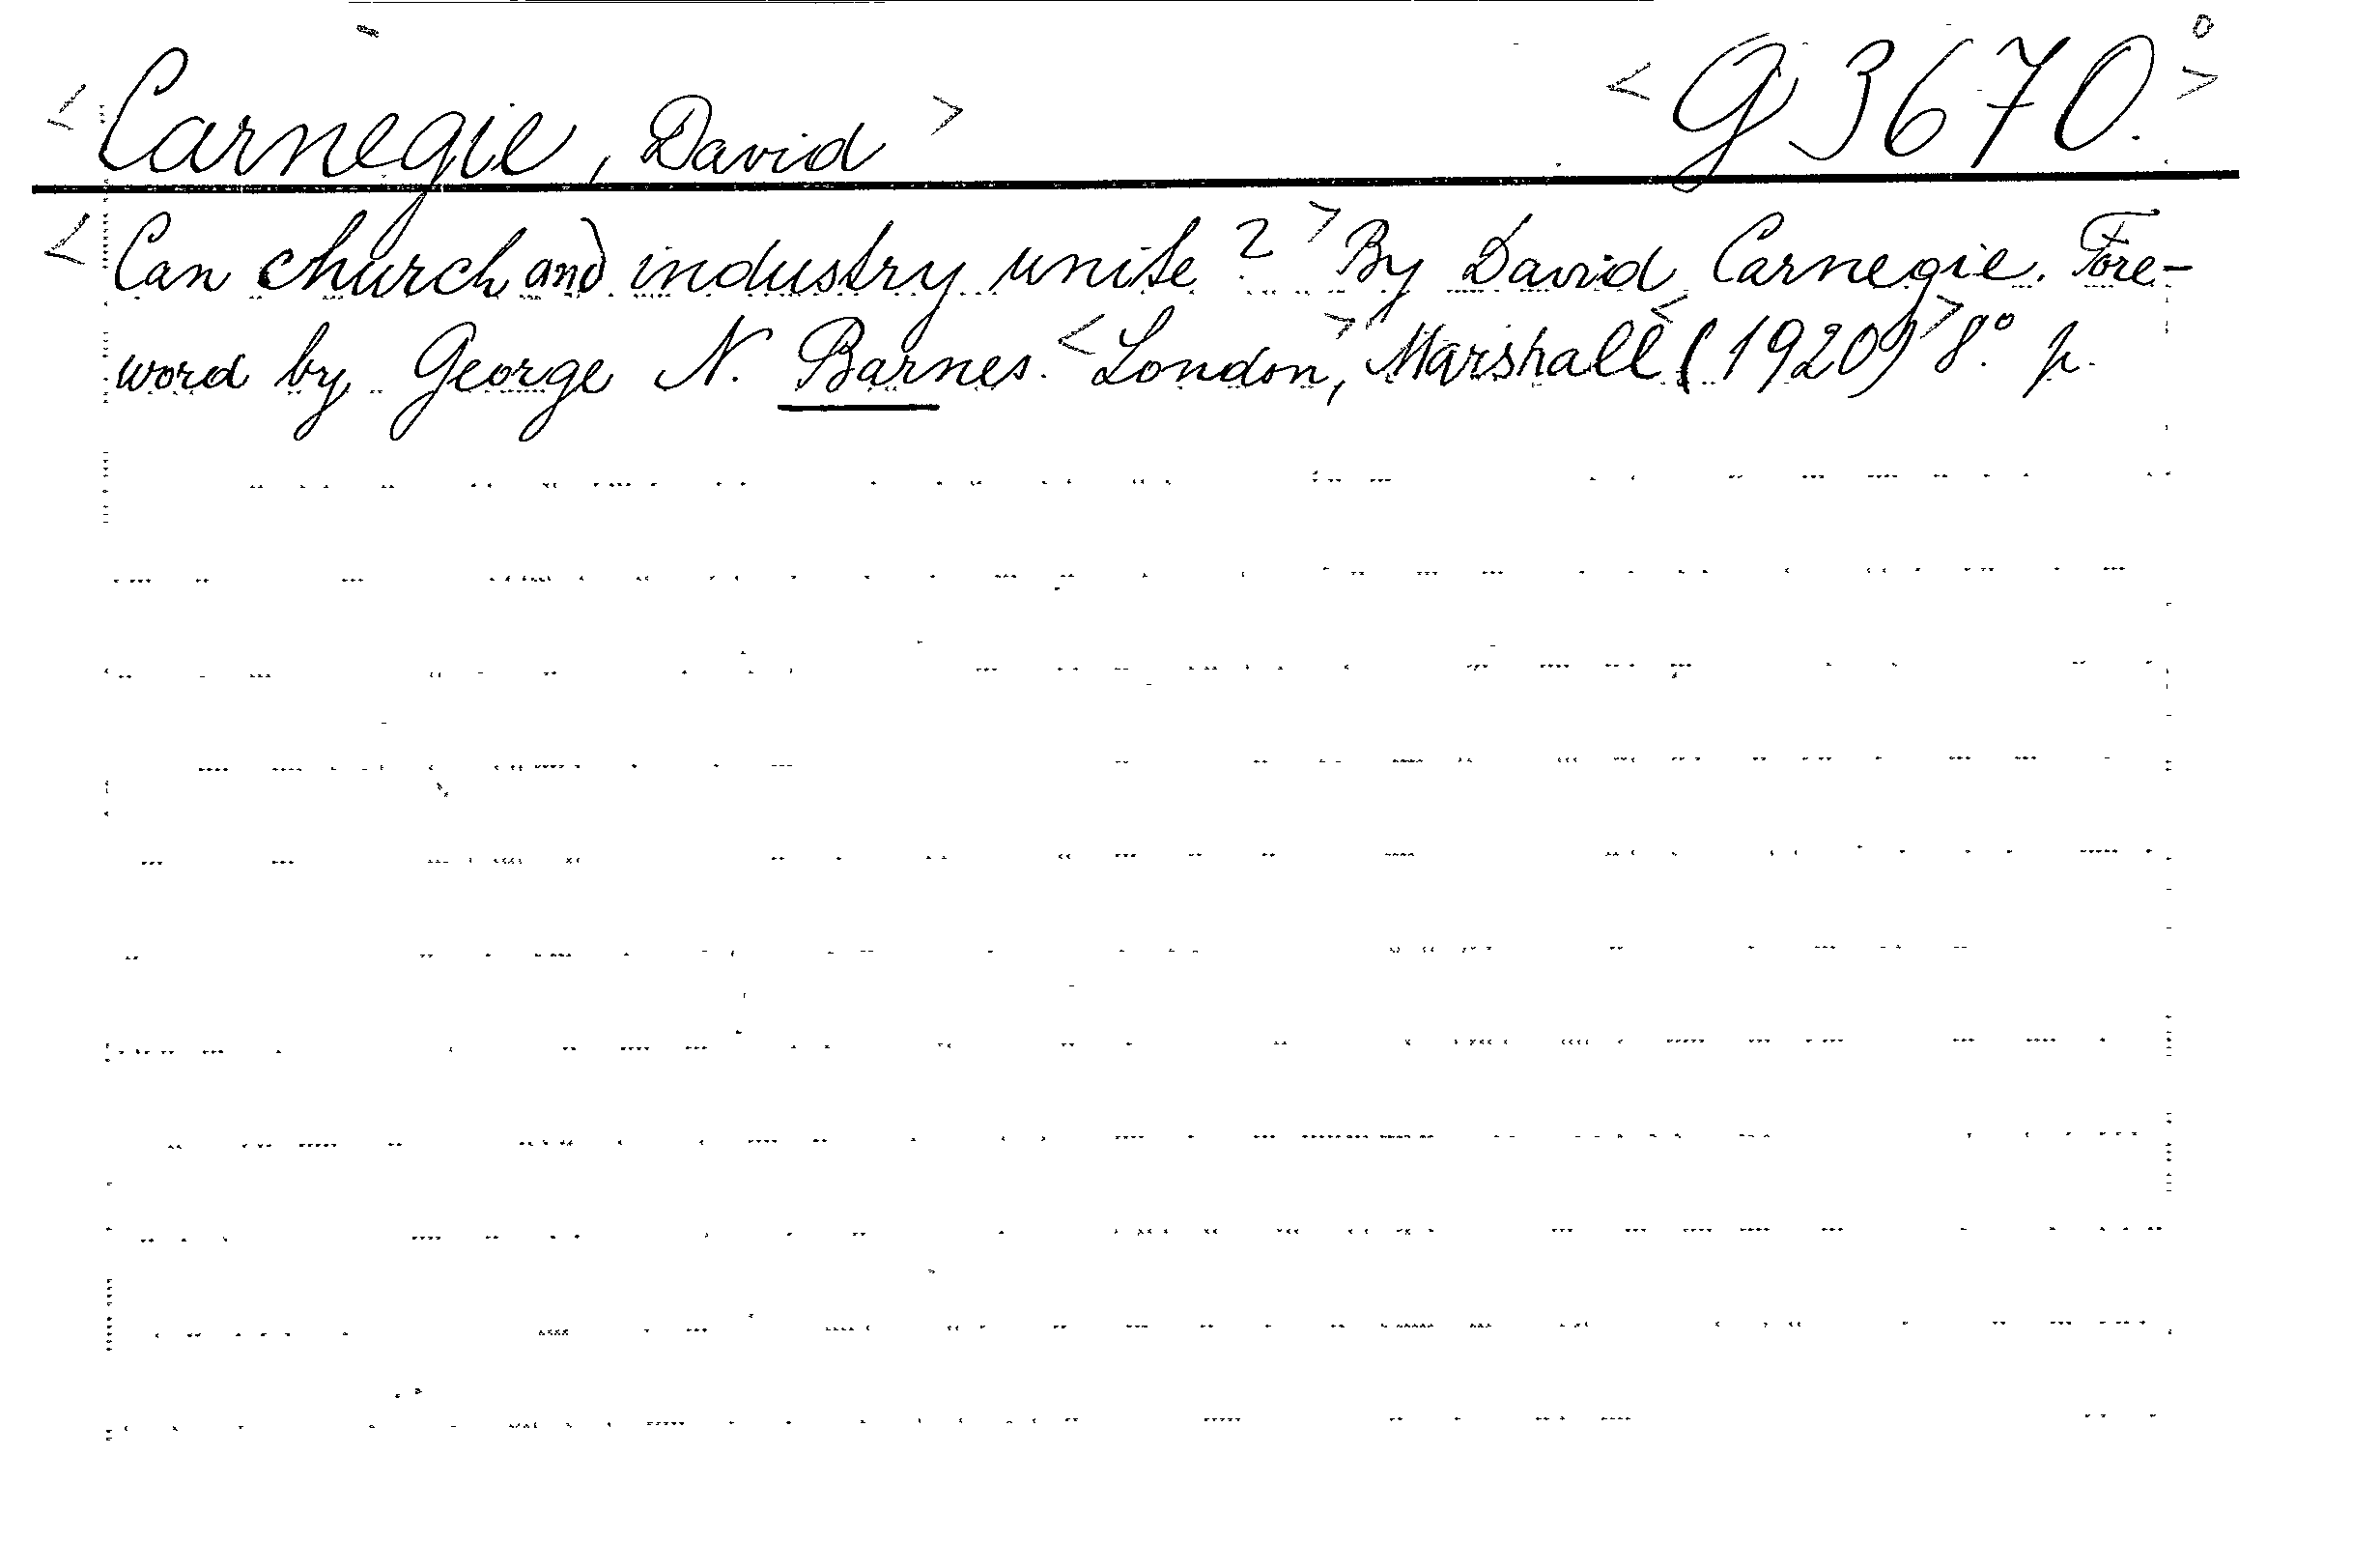 <Carnegie, David> <G 3670.°>
<Can church and industry unite?> By David Carnegie. Fore-
word by George N. Barnes. <London>, Marshall <(1920)> 8°. p.